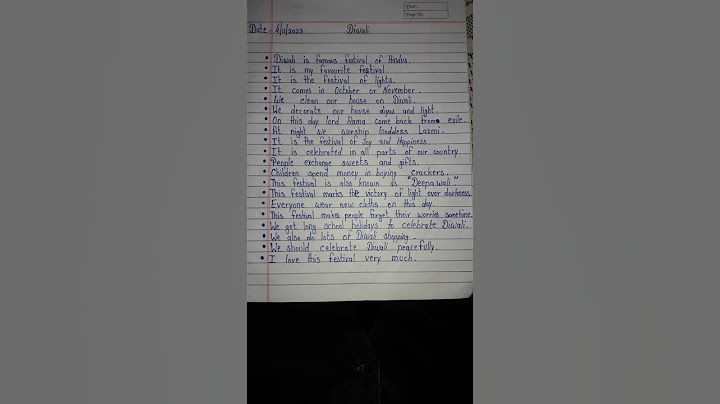 Date :
Page No.
Date - 4/11/2023 Diwali
• Diwali is famous festival of Hindus.
• It is my favourite festival.
• It is the festival of lights.
• It comes in October or November.
• We clean our house on Diwali.
• We decorate our house diyas and light.
• On this day lord Rama came back from exile.
• At night we worship Goddess Laxmi.
• It is the festival of Joy and Happiness.
• It is celebrated in all parts of our country.
• People exchange sweets and gifts.
• Children spend money in buying crackers.
• This festival is also known as "Deepawali".
• This festival marks the victory of light over darkness.
• Everyone wear new cloths on this day.
• This festival makes people forget their worries sometime.
• We get long school holidays to celebrate Diwali.
• We also do lots of Diwali shopping.
• We should celebrate Diwali peacefully.
• I love this festival very much.